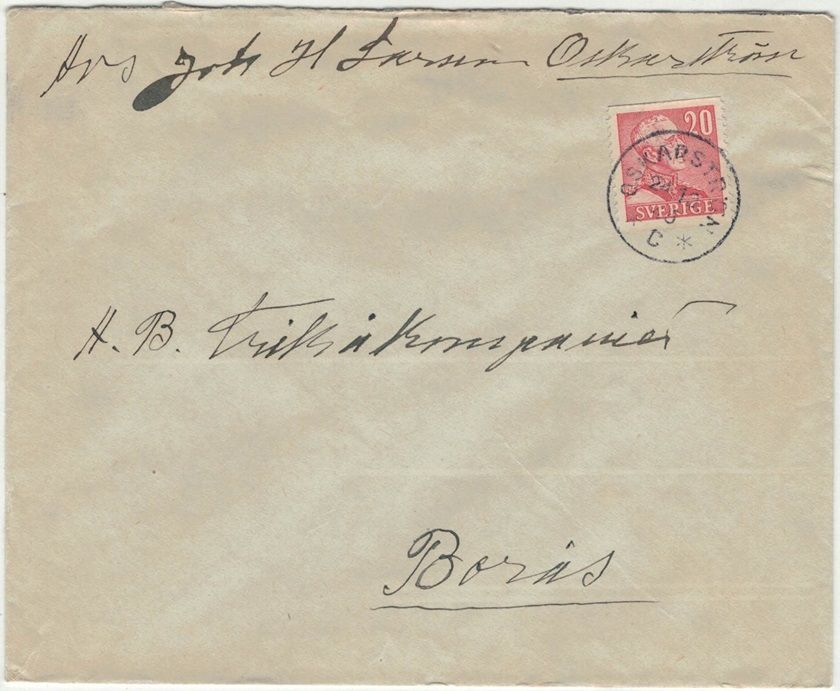 Avs Joh H Larsson Oskarström
20
SVERIGE
OSKARSTRÖM
24.12
C *
A. B. Trikåkompaniet
Borås